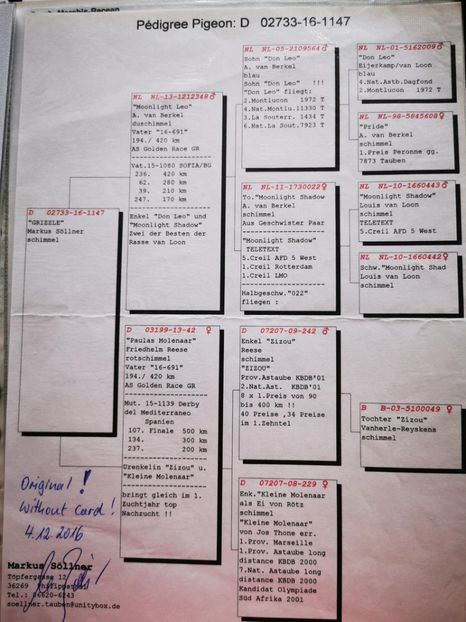 Pédigree Pigeon: D 02733-16-1147
D 02733-16-1147
"GRIZELE"
Markus Söllner
schimmel
NL NL-13-1212348 ♂
"Moonlight Leo"
A. van Berkel
duschimmel
Vater "16-691"
194./ 420 km
AS Golden Race GR
Vat.15-1080 SOFIA/BG
236. 420 km
62. 280 km
39. 210 km
247. 170 km
Enkel "Don Leo" und
"Moonlight Shadow"
Zwei der Besten der
Rasse van Loon
D 03199-13-42 ♀
"Paulas Molenaar"
Friedhelm Reese
rotschimmel
Vater "16-691"
194./ 420 km
AS Golden Race GR
Mut. 15-1139 Derby
del Mediterraneo
Spanien
107. Finale 500 km
134. 300 km
237. 200 km
Urenkelin "Zizou" u.
"Kleine Molenaar"
bringt gleich im 1.
Zuchtjahr top
Nachzucht !!
NL NL-05-2109564 ♂
Sohn "Don Leo"
A. van Berkel
blau
Sohn "Don Leo" !!!
"Don Leo" fliegt:
2.Montlucon 1972 T
4.Nat.Montlu.11330 T
3.La Souterr. 1434 T
6.Nat.La Sout.7923 T
NL NL-11-1730022 ♀
To."Moonlight Shadow
A. van Berkel
schimmel
Aus Geschwister Paar
"Moonlight Shadow"
TELETEXT
5.Creil AFD 5 West
1.Creil Rotterdam
1.Creil LMO
Halbgeschw."022"
fliegen :
D 07207-09-242 ♂
Enkel "Zizou"
Reese
schimmel
"ZIZOU"
Prov.Astaube KBDB'01
2.Nat.Ast. KBDB'01
8 x 1.Preis von 90
bis 400 km !!
40 Preise ,34 Preise
im 1.Zehntel
D 07207-08-229 ♀
Enk."Kleine Molenaar
als Ei von Rötz
schimmel
"Kleine Molenaar"
von Jos Thone err.
1.Prov. Marseille
1.Prov. Astaube long
distance KBDB 2000
7.Nat. Astaube long
distance KBDB 2000
Kandidat Olympiade
Süd Afrika 2001
NL NL-01-5162009 ♂
"Don Leo"
Eijerkamp/van Loon
blau
4.Nat.Astb.Dagfond
2.Montlucon 1972 T
NL NL-98-5845608 ♀
"Pride"
A. van Berkel
schimmel
1.Preis Peronne gg.
7873 Tauben
NL NL-10-1660443 ♂
"Moonlight Shadow"
Louis van Loon
schimmel
TELETEXT
5.Creil AFD 5 West
NL NL-10-1660442 ♀
Schw."Moonlight Shad
Louis van Loon
schimmel
B B-03-5100049 ♀
Tochter "Zizou"
Vanherle-Reyskens
schimmel
Original !
Without Card !
4.12.2016
Markus Söllner
Töpfergasse 12
36269 Philippsthal
Tel.: 06620-6243
soellner.tauben@unitybox.de